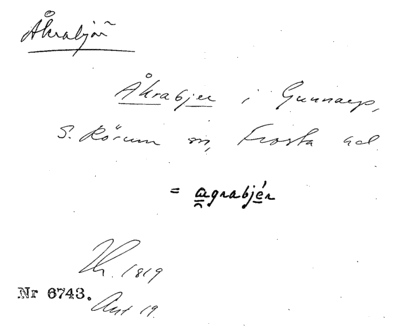 Åkrabjär
Åkrabjer i Gunnarp,
S. Rörum sn, Frosta hd
= agrabjér
1819
Nr 6743.